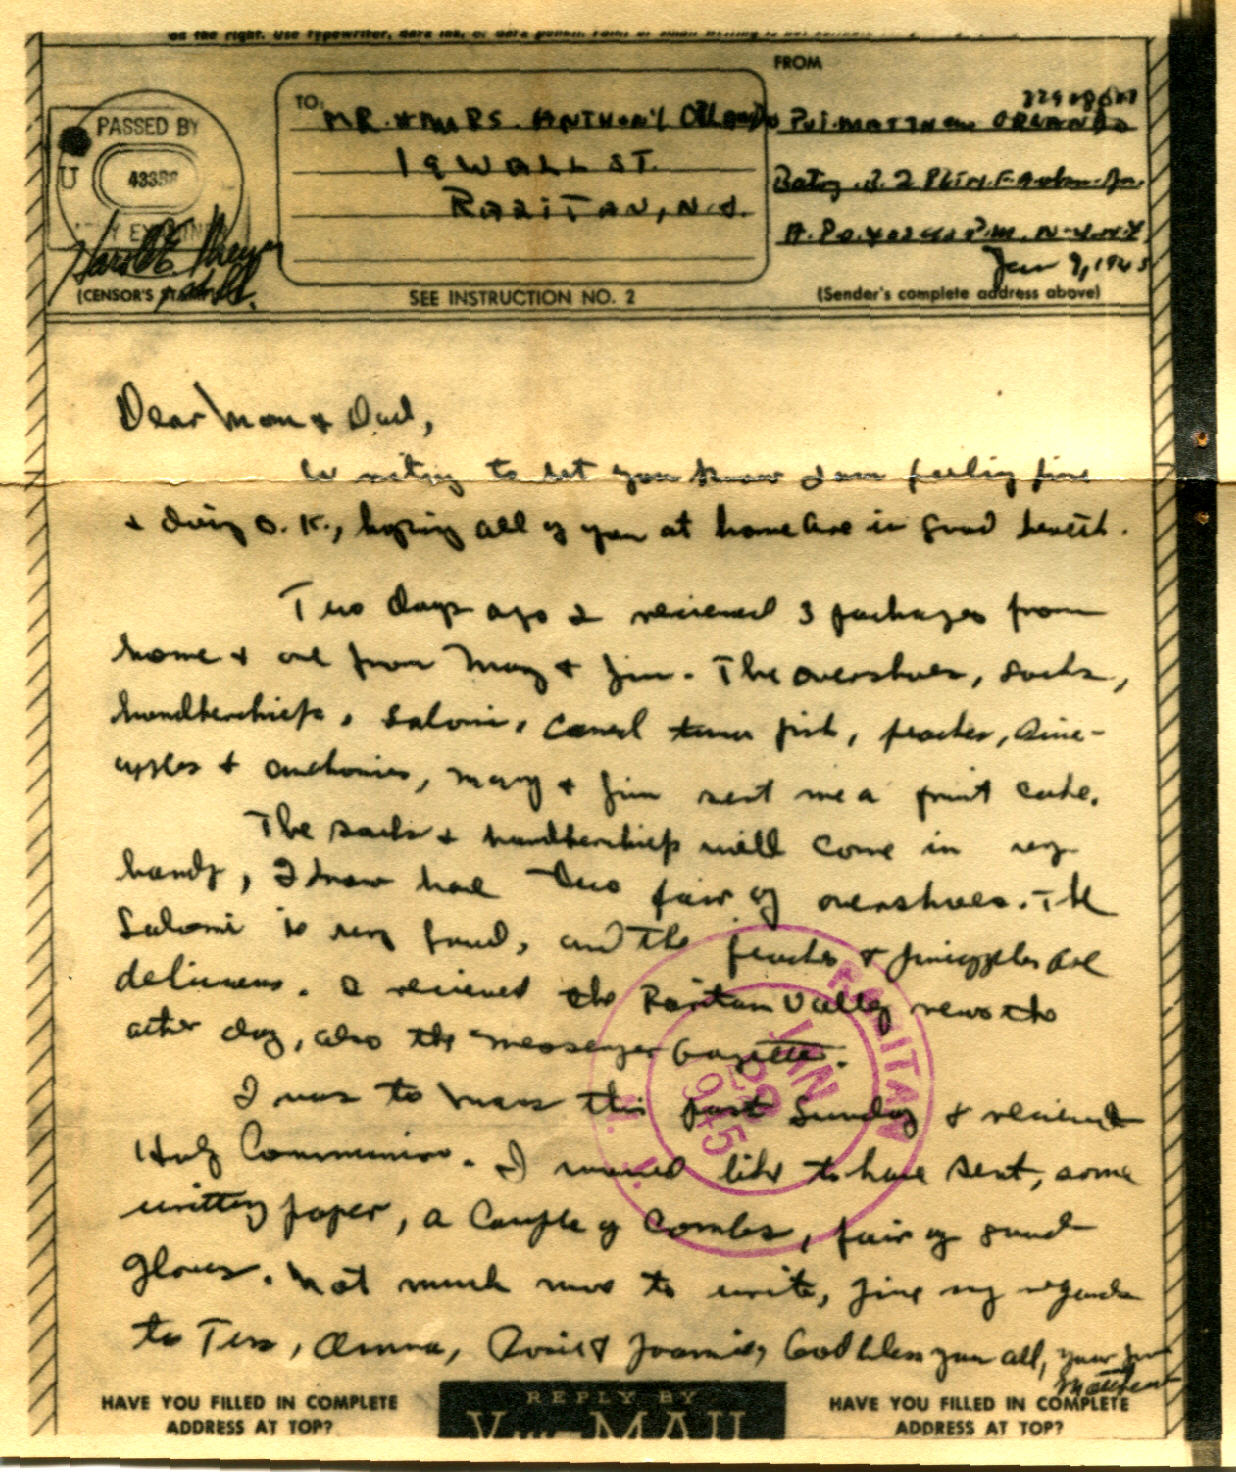 on the right. Use typewriter, dark ink, or dark pencil.
PASSED BY
U
43352
Y EXAMINER
(CENSOR'S STAMP)
TO:
MR. & MRS. ANTHONY ORLANDO
19 WALL ST.
RARITAN, N.J.
SEE INSTRUCTION NO. 2
FROM
PVT. MATTHEW ORLANDO
A.P.O. P.M. N.Y. N.Y.
Jan 9, 1945
(Sender's complete address above)
Dear Mom & Dad,
to let you know I am feeling fine
& doing O.K., hoping all of you at home are in good health.
Two days ago I recieved 3 packages from
home & one from Mary & Jim. The overshoes, socks,
handkerchiefs, Salomi, caned tuna fish, peaches, Pine-
apples & anchovies, Mary & Jim sent me a fruit cake.
The socks & handkerchiefs will come in very
handy, I know have two pair of overshoes. The
Salomi is very good, and the peaches & pineapples are
delicious. I recieved the Raritan Valley news the
other day, also the Messenger Gazette.
I was to Mass this past Sunday & recieved
Holy Communion. I would like to have sent, some
writting paper, a couple of combs, pair of
gloves. Not much more to write, give my regards
to Tess, Anna, Rosie & Joannie, God bless you all, your son
Matthew
RARITAN
JAN
29
1945
N. J.
HAVE YOU FILLED IN COMPLETE
ADDRESS AT TOP?
REPLY BY
V-MAIL
HAVE YOU FILLED IN COMPLETE
ADDRESS AT TOP?